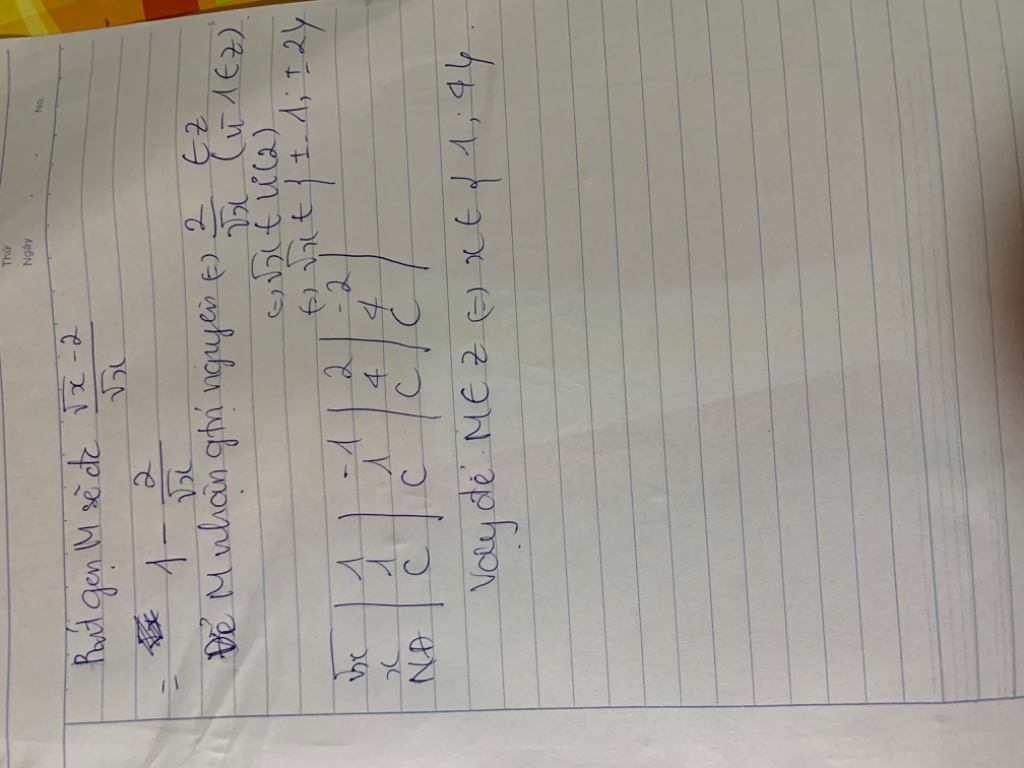 Thứ
Ngày
No.
Rút gọn M sẽ đc √x - 2 / √x
= 1 - 2/√x
Để M nhận giá nguyên (=) 2/√x ∈ Z (vì 1 ∈ Z)
(=) √x ∈ Ư(2)
(=) √x ∈ { ± 1; ± 2}
√x | 1 | -1 | 2 | -2 |
x | 1 | 1 | 4 | 4
NĐ | C | C | C | C |
Vậy để M ∈ Z (=) x ∈ { 1; 4}.